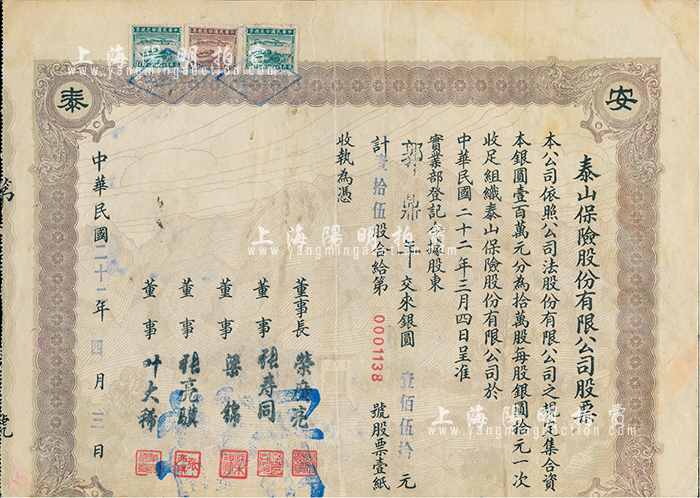 安
泰
泰山保險股份有限公司股票
本公司依照公司法股份有限公司之規定集合資
本銀圓壹百萬元分為拾萬股每股銀圓拾元一次
收足組織泰山保險股份有限公司於
中華民國二十二年三月四日呈准
實業部登記合據股東
郭鼎年交來銀圓壹佰伍拾元
計壹拾伍股合給第0001138號股票壹紙
收執為憑
董事長
董事 張壽同
董事 梁錦
董事 張亮驥
董事 叶大稀
中華民國二十二年四月二日
上海陽明拍賣
www.yangmingauction.com
上海陽明拍賣
www.yangmingauction.com
上海陽明拍賣
www.yangmingauction.com